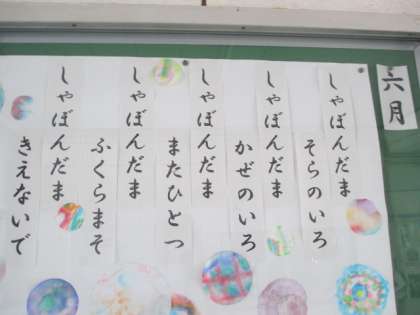 六月
しゃぼんだま
そらのいろ
しゃぼんだま
かぜのいろ
しゃぼんだま
またひとつ
しゃぼんだま
ふくらまそ
しゃぼんだま
きえないで